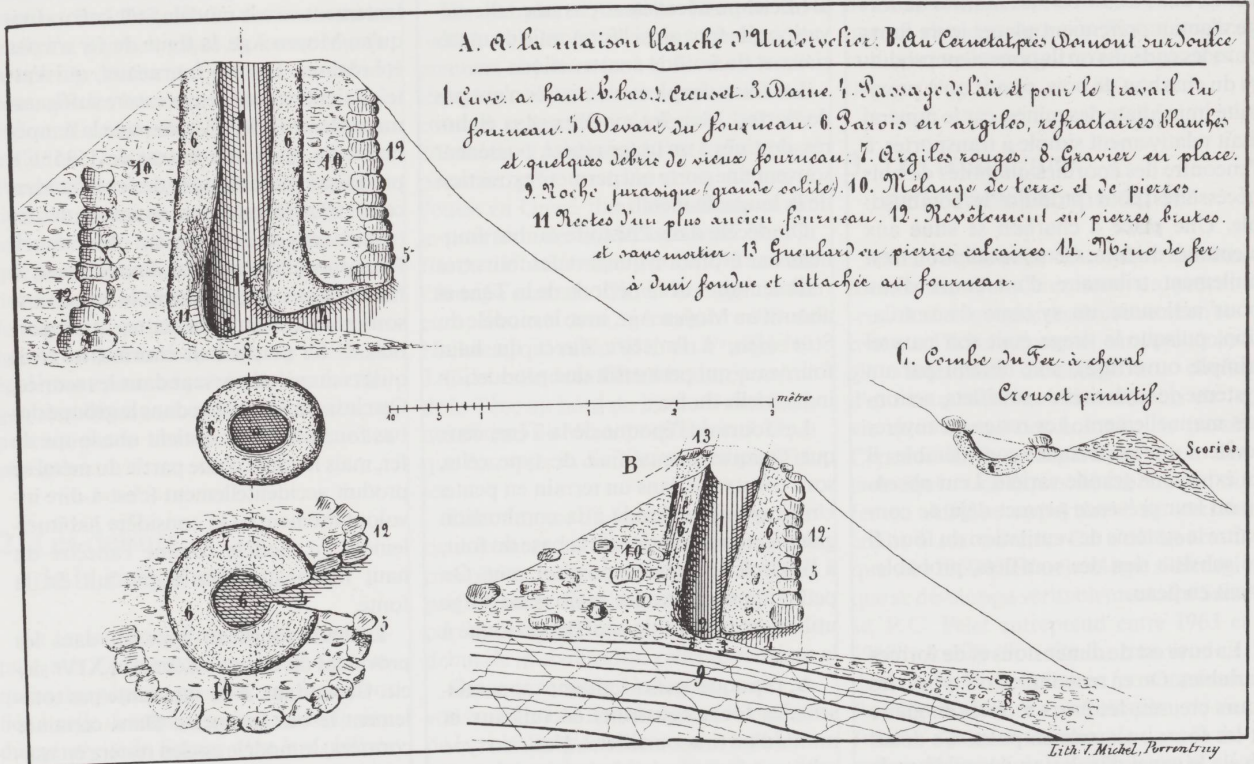 A. A la maison blanche d'Undervelier. B. Au Cernetat, près Domont sur Soulce.
1. Cuve. a. haut. b. bas. 2. Creuset. 3. Dame. 4. Passage de l'air et pour le travail du
fourneau. 5. Devant du fourneau. 6. Parois en argiles, réfractaires blanches
et quelques débris de vieux fourneau. 7. Argiles rouges. 8. Gravier en place.
9. Roche jurasique (grande oolite). 10. Mélange de terre et de pierres.
11 Restes d'un plus ancien fourneau. 12. Revêtement en pierres brutes.
et sans mortier. 13 Gueulard en pierres calcaires. 14. Mine de fer
à demi fondue et attachée au fourneau.
10 6 6 10 12
12 5
11 14
2 3 4
8
6
10 5 1 1 2 3 mètres
C. Combe du Fer à cheval
Creuset primitif.
Scories.
13
B
7 12
6 6 1 6 12
10 5
2 3 4
9 8
10 5
Lith. J. Michel, Porrentruy